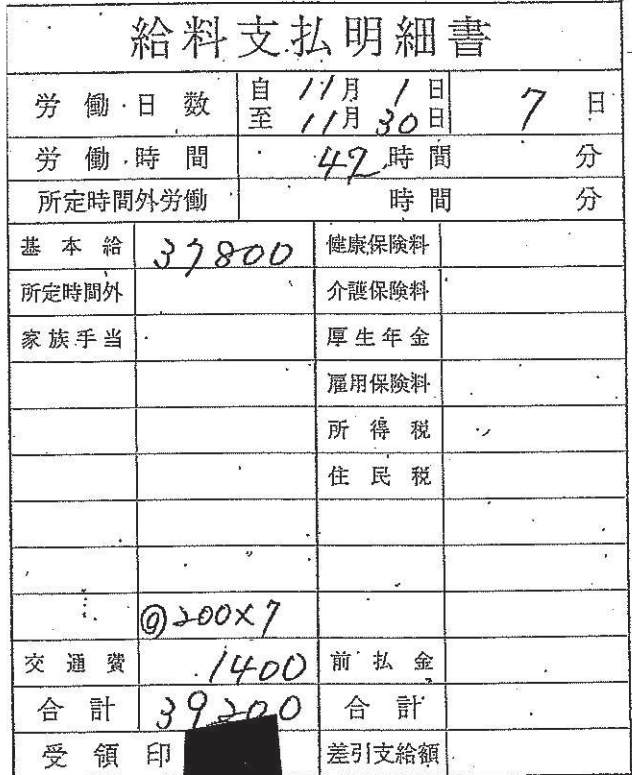 給料支払明細書
労働日数 自 11月 1日 7日
至 11月 30日
労働時間 42時間 分
所定時間外労働 時間 分
基本給 37800 健康保険料
所定時間外 介護保険料
家族手当 厚生年金
雇用保険料
所得税
住民税
@200×7
交通費 1400 前払金
合計 39200 合計
受領印 差引支給額